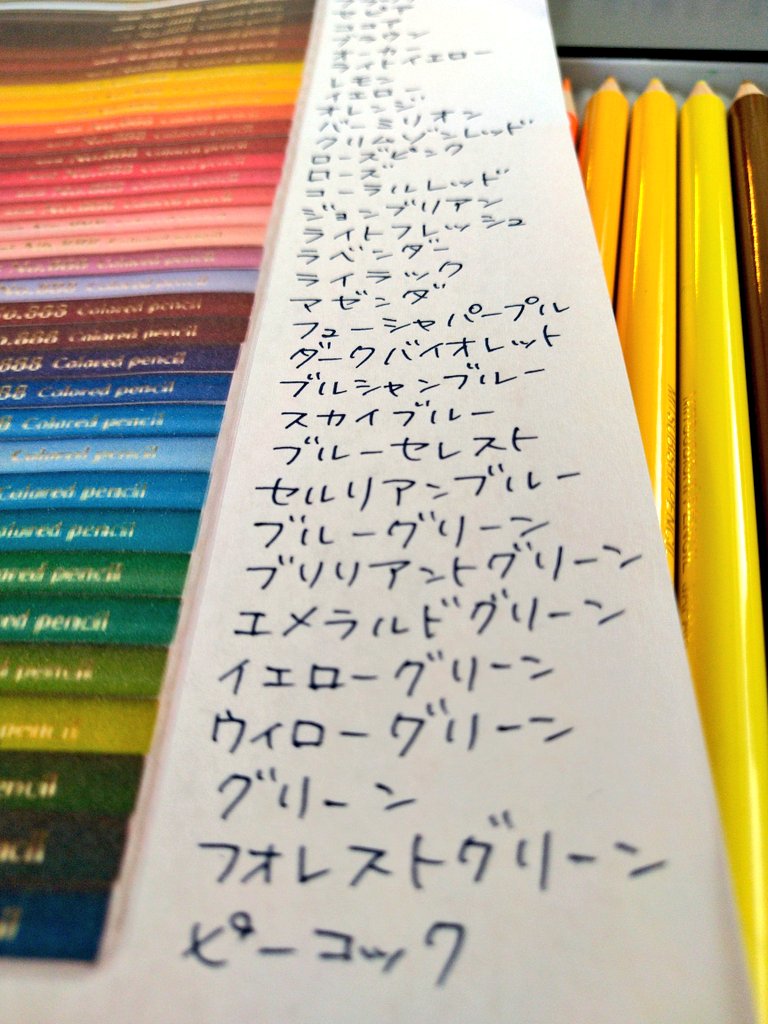 ココア
ブラウン
オーカー
ライトイエロー
レモン
イエロー
オレンジ
バーミリオン
クリムゾンレッド
ローズピンク
ローズ
コーラルレッド
ジョンブリアン
ライトフレッシュ
ラベンダー
ライラック
マゼンダ
フューシャパープル
ダークバイオレット
プルシャンブルー
スカイブルー
ブルーセレスト
セルリアンブルー
ブルーグリーン
ブリリアントグリーン
エメラルドグリーン
イエローグリーン
ウィローグリーン
グリーン
フォレストグリーン
ピーコック
No.888 Colored pencil
No.888 Colored pencil
.888 Colored pencil
888 Colored pencil
88 Colored pencil
8 Colored pencil
Colored pencil
Colored pencil
olored pencil
ored pencil
red pencil
d pencil
pencil
encil
cil
il